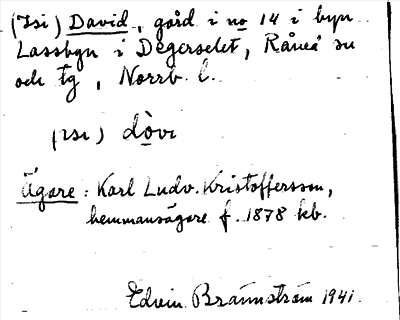 (Isi) David, gård i no 14 i byn
Lassbyn i Degerselet, Råneå sn
och tg, Norrb. l.
(ɪsɪ) dòvɪ
Ägare: Karl Ludv. Kristoffersson,
hemmansägare f. 1878 kb.
Edvin Brännström 1941.